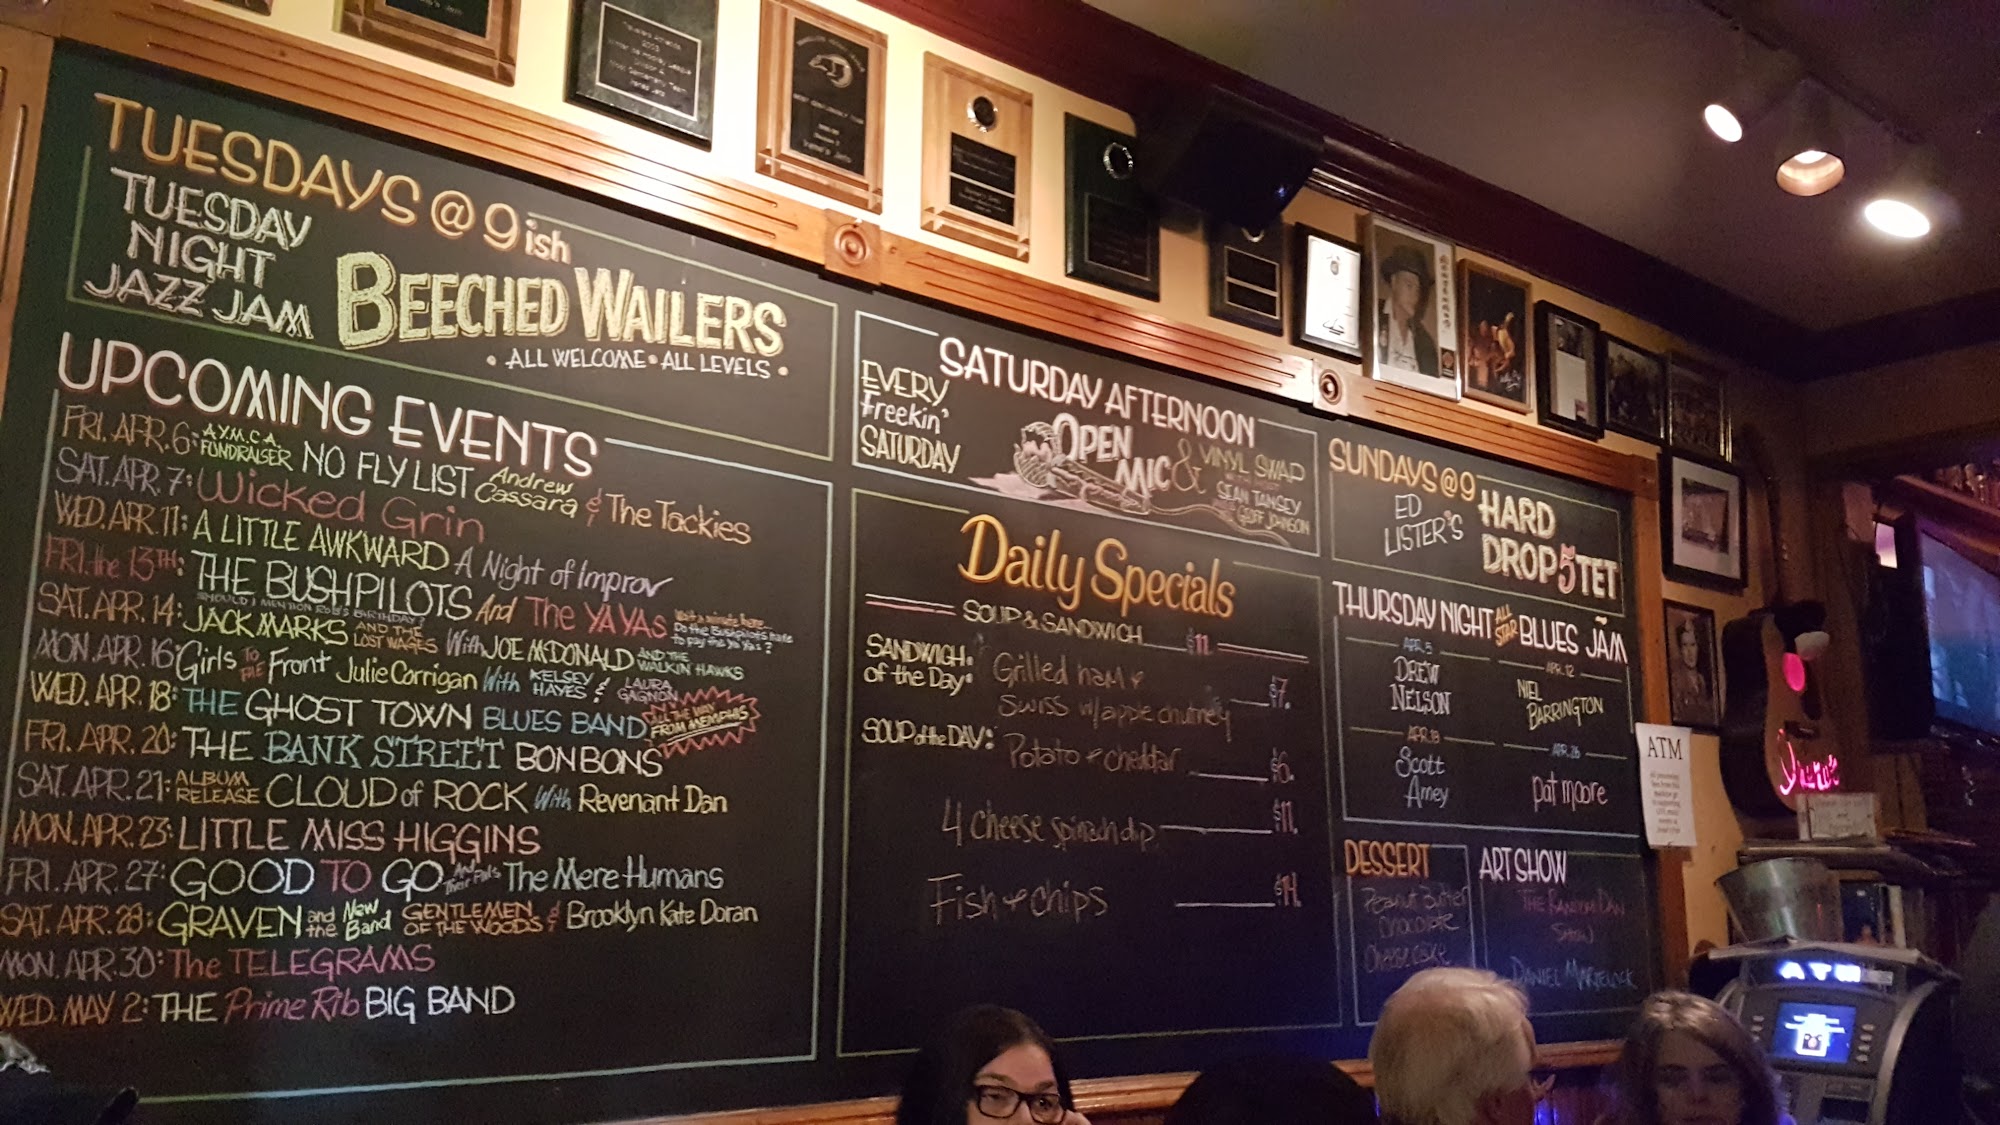 TUESDAYS @ 9ish
TUESDAY
NIGHT
JAZZ JAM
BEECHED WAILERS
• ALL WELCOME • ALL LEVELS •
UPCOMING EVENTS
FRI. APR. 6: A.Y.M.C.A. FUNDRAISER NO FLY LIST Andrew Cassara & The Tackies
SAT. APR. 7: Wicked Grin
WED. APR. 11: A LITTLE AWKWARD A Night of Improv
FRI. the 13TH: THE BUSHPILOTS And The YA YAS
SHOULD I MENTION ROB'S BIRTHDAY?
Wait a minute here...
Do the Bushpilots have
to pay the Ya Yas?
SAT. APR. 14: JACK MARKS AND THE LOST WAGES With JOE McDONALD AND THE WALKIN HAWKS
MON. APR. 16: Girls TO THE Front Julie Corrigan With KELSEY HAYES & LAURA GAGNON
WED. APR. 18: THE GHOST TOWN BLUES BAND ALL THE WAY FROM MEMPHIS
FRI. APR. 20: THE BANK STREET BONBONS
SAT. APR. 21: ALBUM RELEASE CLOUD of ROCK With Revenant Dan
MON. APR. 23: LITTLE MISS HIGGINS
FRI. APR. 27: GOOD TO GO And Their Pals The Mere Humans
SAT. APR. 28: GRAVEN and the New Band GENTLEMEN OF THE WOODS & Brooklyn Kate Doran
MON. APR. 30: The TELEGRAMS
WED. MAY 2: THE Prime Rib BIG BAND
SATURDAY AFTERNOON
EVERY
Freekin'
SATURDAY
OPEN
MIC
& VINYL SWAP
SEAN TANSEY
GEOFF JOHNSON
Daily Specials
SOUP & SANDWICH $11.
SANDWICH
of the Day:
Grilled ham +
Swiss w/ apple chutney $7.
SOUP of the DAY: Potato + cheddar $6.
4 cheese spinach dip $11.
Fish + chips $14.
SUNDAYS @ 9
ED
LISTER'S
HARD
DROP 5TET
THURSDAY NIGHT ALL STAR BLUES JAM
APR. 5
DREW
NELSON
APR. 12
NIEL
BARRINGTON
APR. 19
Scott
Amey
APR. 26
pat moore
DESSERT
Peanut Butter
chocolate
cheesecake
ART SHOW
THE RANDOM DAN
SHOW
DANIEL MARTELOCK
ATM
Irene's
ATM